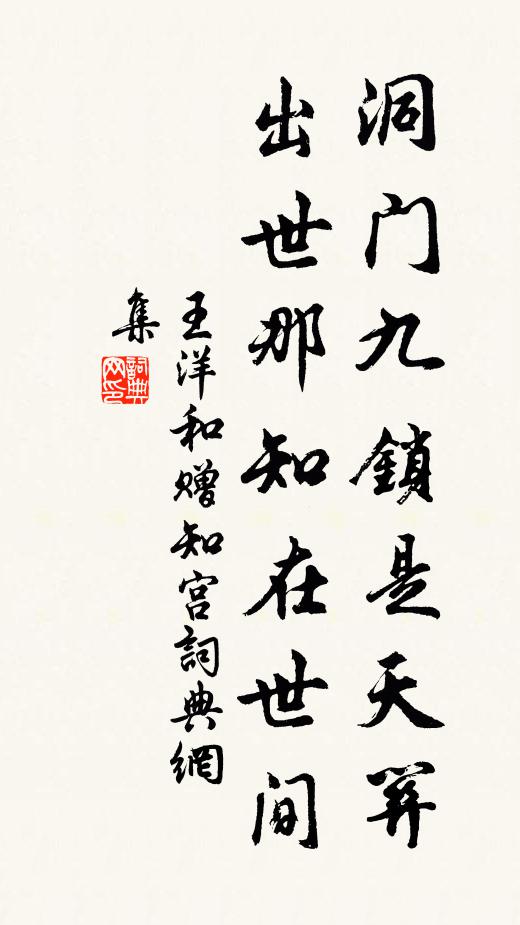 洞门九鎖是天關
出世那知在世间
王洋和赠知宫詞典網
集
詞典
网印